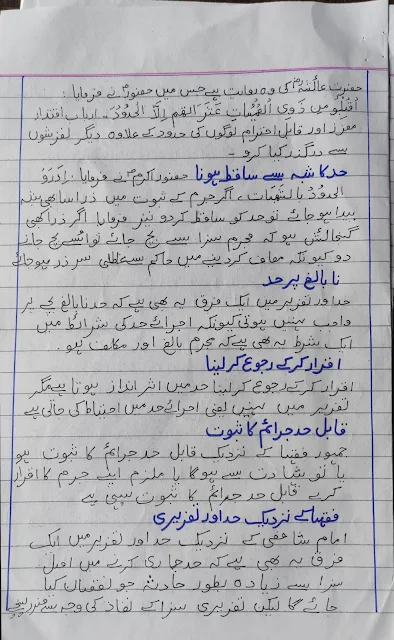 حضرت عائشہؓ کی وہ روایت ہے جس میں حضورؐ نے فرمایا:
اَقِیْلُو مِن ذَوِی الْهَیْئَات عَثَرَ اتِهِم اِلَّا الْحُدُوْدَ۔ ارباب اقتدار
معزز اور قابل احترام لوگوں کی حدود کے علاوہ دیگر لغزشوں
سے درگذر کیا کرو۔
حد کا شبہ سے ساقط ہونا حضور اکرمؐ نے فرمایا: اِدْرَءُو
الْحدُوْدَ بِالشُّبَهَات، اگر جرم کے ثبوت میں ذرا سا بھی شبہ
پیدا ہو جائے تو حد کو ساقط کردو نیز فرمایا اگر ذرا بھی
گنجائش ہو کہ مجرم سزا سے بچ جائے تو اسے بچ جانے
دو کیونکہ معاف کردینے میں حاکم سے غلطی سرزد ہو جائے
نابالغ پر حد
حد اور تعزیر میں ایک فرق یہ بھی ہے کہ حد نابالغ بچے پر
واجب نہیں ہوتی کیونکہ اجرائے حد کی شرائط میں
ایک شرط یہ بھی ہے کہ مجرم بالغ اور مکلف ہو۔
اقرار کرکے رجوع کرلینا
اقرار کرکے رجوع کرلینا حد میں اثر انداز ہوتا ہے مگر
تعزیر میں نہیں یعنی اجرائے حد میں احتیاط کی جاتی ہے
قابل حد جرائم کا ثبوت
جمہور فقہا کے نزدیک قابل حد جرائم کا ثبوت ہو
یا تو شہادت سے ہوگا یا ملزم اپنے جرم کا اقرار
کرے قابل حد جرائم کا ثبوت یہی ہے
فقہا کے نزدیک حد اور تعزیری
امام شافعی کے نزدیک حد اور تعزیر میں ایک
فرق یہ بھی ہے کہ حد جاری کرنے میں اصل
سزا سے زیادہ بطور حادثہ جو نقصان کیا
جائے گا لیکن تعزیری سزا کے نفاذ کی وجہ سے